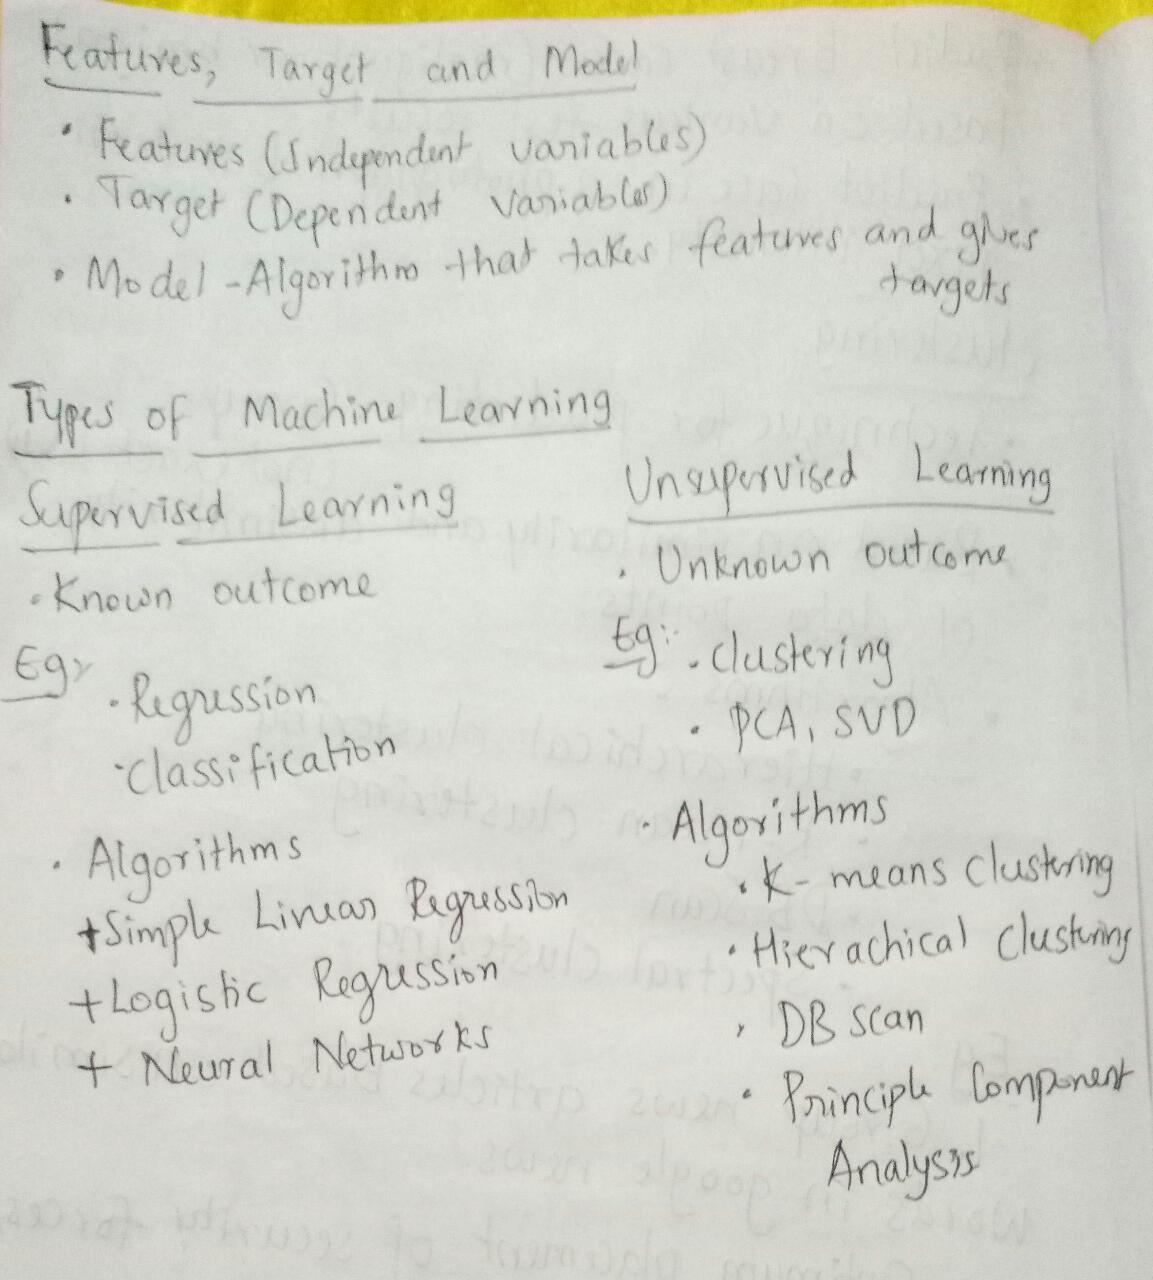 Features, Target and Model
• Features (Independent variables)
• Target (Dependent variables)
• Model - Algorithm that takes features and gives
targets
Types of Machine Learning
Supervised Learning
• Known outcome
Eg:
• Regression
• Classification
• Algorithms
+ Simple Linear Regression
+ Logistic Regression
+ Neural Networks
Unsupervised Learning
• Unknown outcome
Eg:- • Clustering
• PCA, SVD
• Algorithms
• K-means Clustering
• Hierachical Clustering
• DB scan
• Principle Component
Analysis